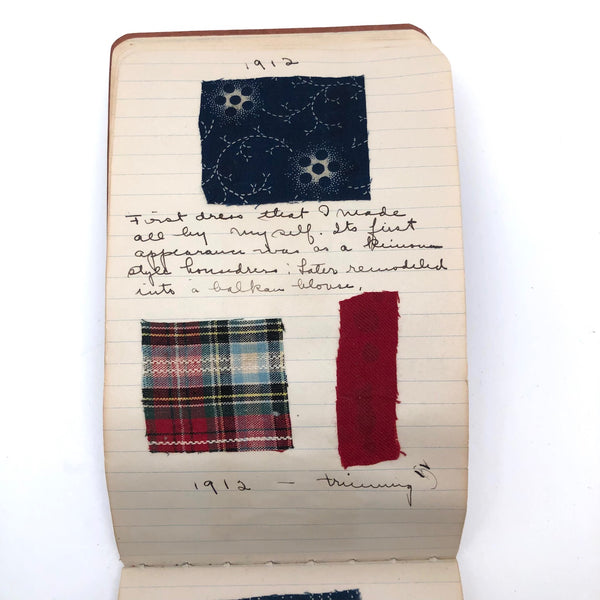 1912
First dress that I made
all by myself. Its first
appearance was as a kimono
style housedress; Later remodeled
into a balkan blouse.
1912 — trimming